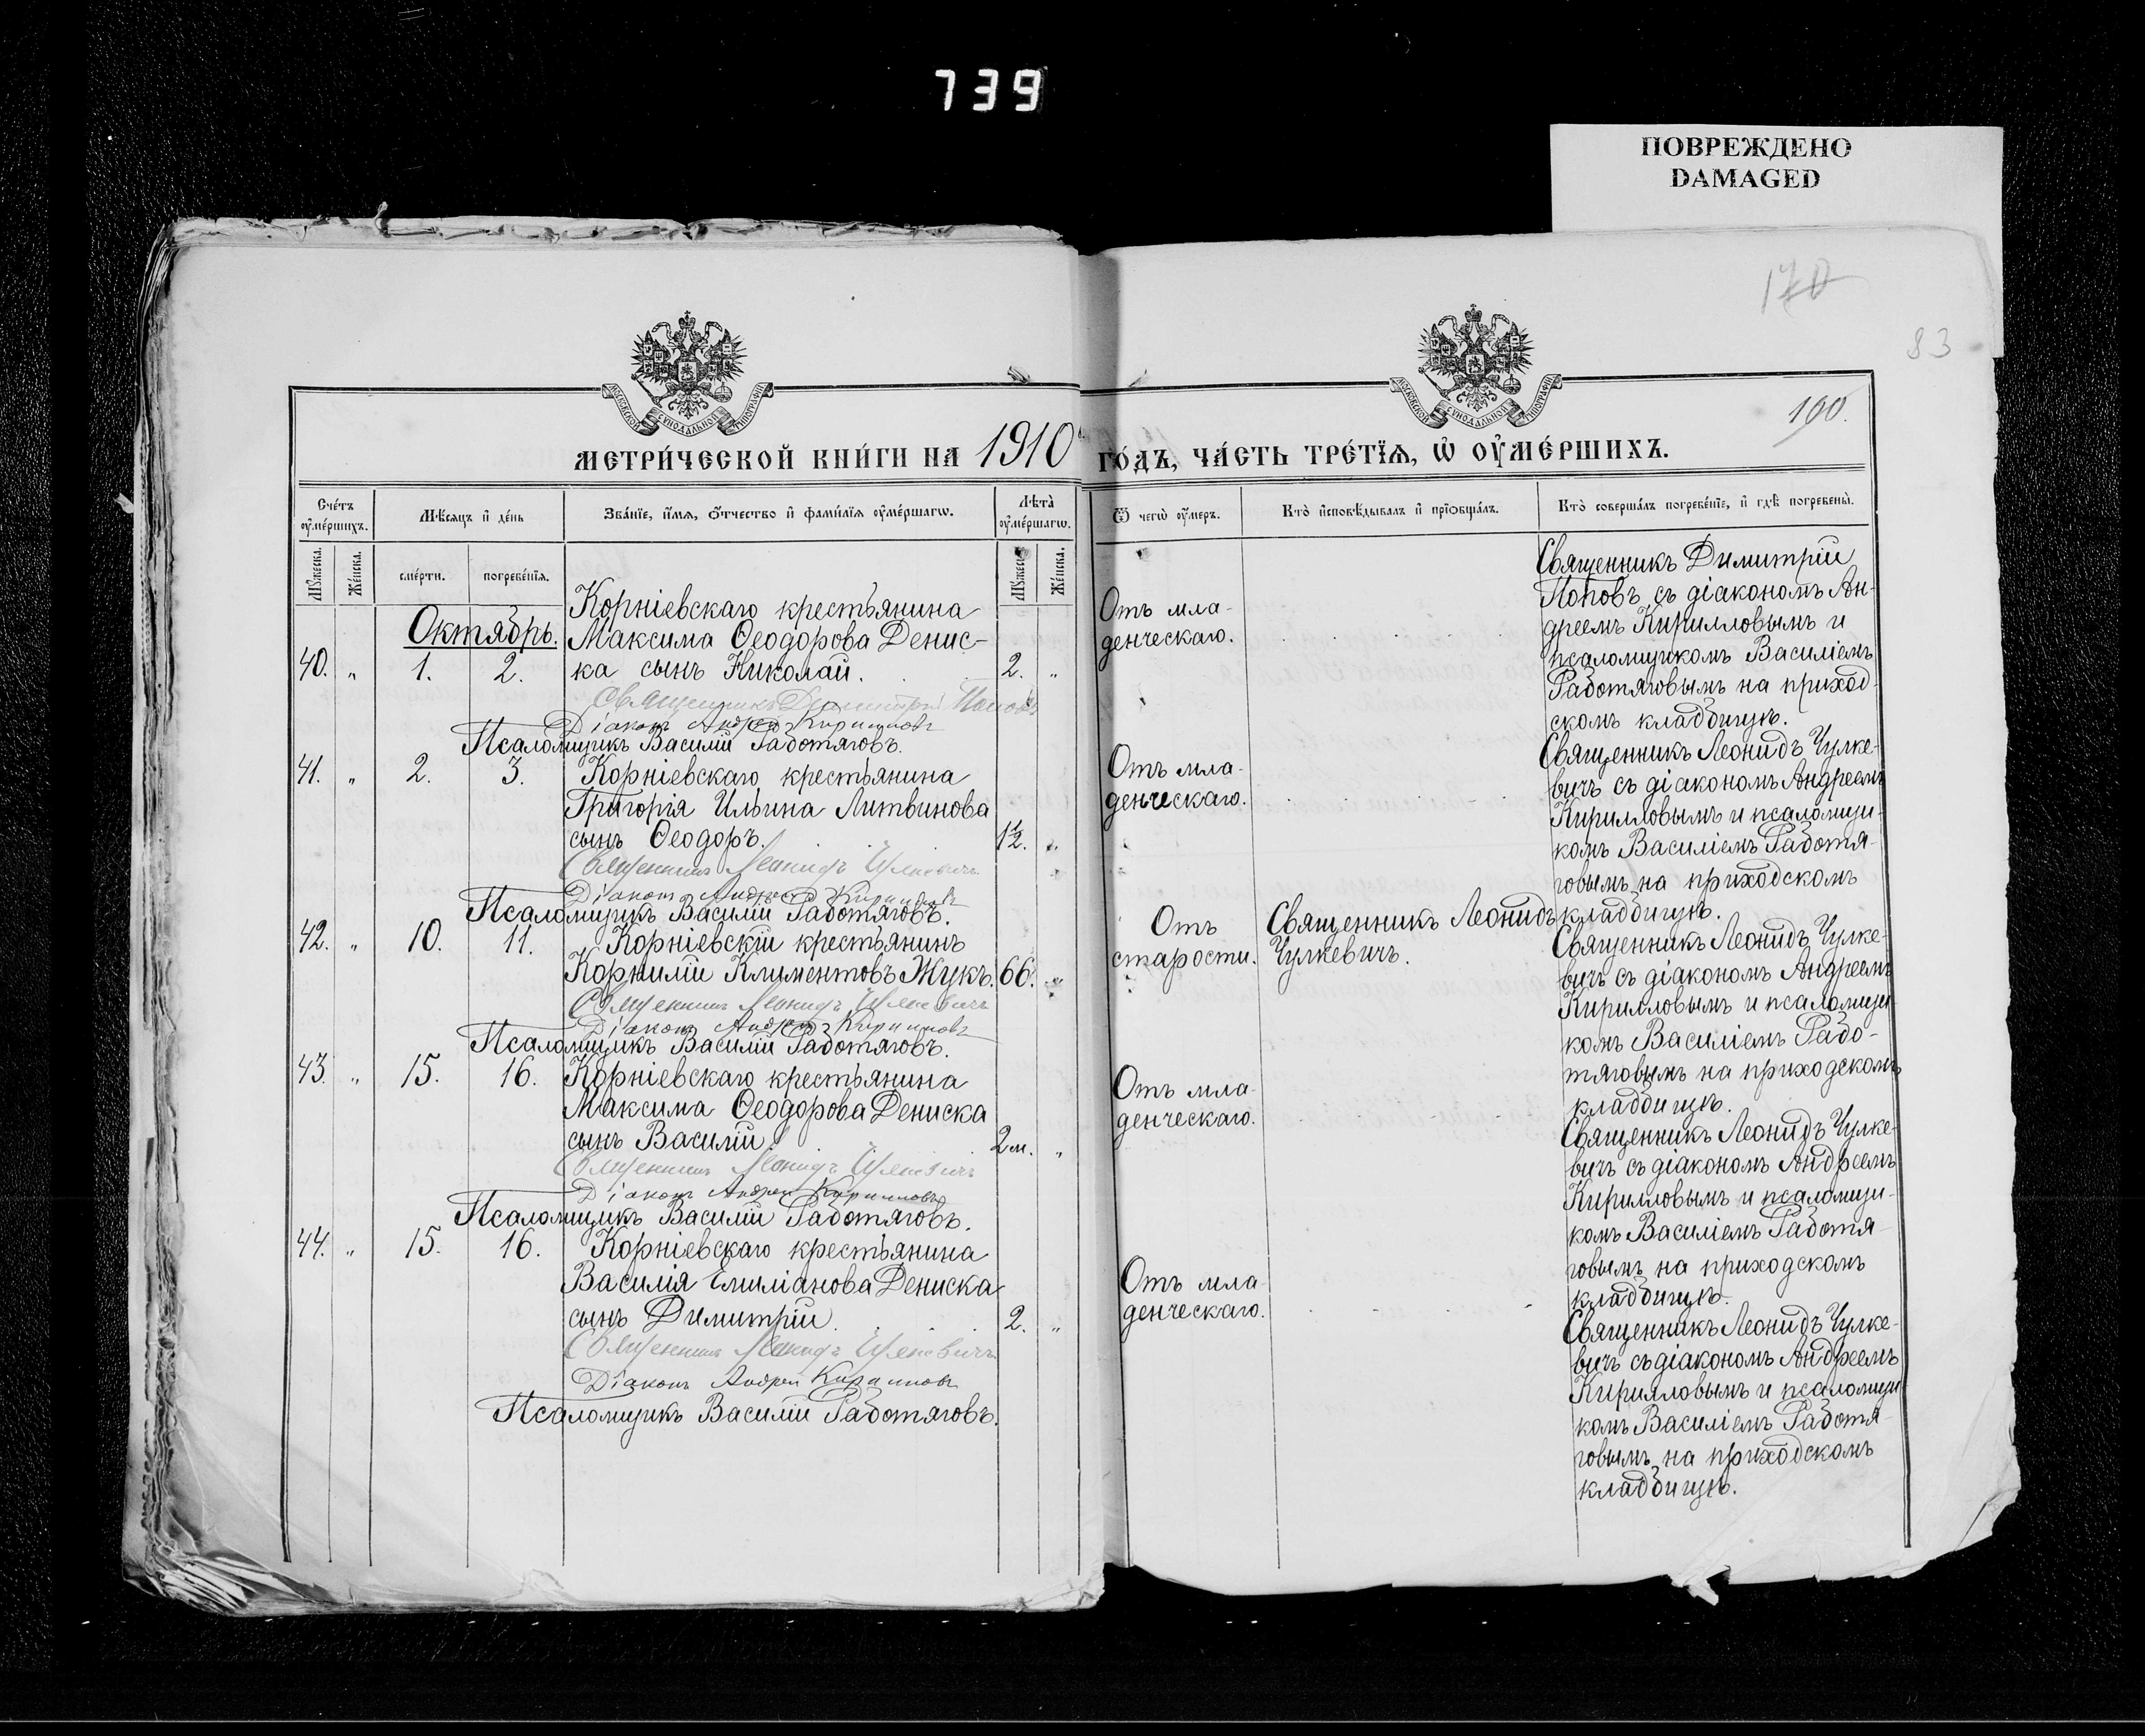 739
ПОВРЕЖДЕНО
DAMAGED
170
83
100.
МЕТРИ́ЧЕСКОЙ КНИ́ГИ НА 1910 ГО́ДЪ, ЧА́СТЬ ТРЕ́ТЇѦ, Ѡ҆ ОУ҆МЕ́РШИХЪ.
Сче́тъ оу҆ме́ршихъ.
Мѣ́сѧцъ и҆ де́нь
Зва́нїе, и҆́мѧ, ѻ҆́тчество и҆ фами́лїѧ оу҆ме́ршагѡ.
Лѣ́та оу҆ме́ршагѡ.
Ѿ чегѡ̀ оу҆́меръ.
Кто̀ и҆сповѣ́дывалъ и҆ прїѡбща́лъ.
Кто̀ соверша́лъ погребе́нїе, и҆ гдѣ̀ погребены̀.
Мꙋ́жеска.
Же́нска.
сме́рти.
погребе́нїѧ.
Мꙋ́жеска.
Же́нска.
Октябрь.
40. " 1. 2.
Корніевскаго крестьянина
Максима Ѳеодорова Денис-
ка сынъ Николай. 2. "
Священникъ Димитрій Поповъ
Діаконъ Андрей Кирилловъ
Псаломщикъ Василій Работяговъ.
Отъ мла-
денческаго.
Священникъ Димитрій
Поповъ съ діакономъ Ан-
дреемъ Кирилловымъ и
псаломщикомъ Василіемъ
Работяговымъ на приход-
скомъ кладбищѣ.
41. " 2. 3.
Корніевскаго крестьянина
Григорія Ильина Литвинова
сынъ Ѳеодоръ. 1½. "
Священникъ Леонидъ Чулкевичъ
Діаконъ Андрей Кирилловъ
Псаломщикъ Василій Работяговъ.
Отъ мла-
денческаго.
Священникъ Леонидъ Чулке-
вичъ съ діакономъ Андреемъ
Кирилловымъ и псаломщи-
комъ Василіемъ Работя-
говымъ на приходскомъ
кладбищѣ.
42. " 10. 11.
Корніевскій крестьянинъ
Корнилій Климентовъ Жукъ. 66. "
Священникъ Леонидъ Чулкевичъ
Діаконъ Андрей Кирилловъ
Псаломщикъ Василій Работяговъ.
Отъ
старости.
Священникъ Леонидъ
Чулкевичъ.
Священникъ Леонидъ Чулке-
вичъ съ діакономъ Андреемъ
Кирилловымъ и псаломщи
комъ Василіемъ Рабо-
тяговымъ на приходскомъ
кладбищѣ.
43. " 15. 16.
Корніевскаго крестьянина
Максима Ѳеодорова Дениска
сынъ Василій. 2 м. "
Священникъ Леонидъ Чулкевичъ
Діаконъ Андрей Кирилловъ
Псаломщикъ Василій Работяговъ.
Отъ мла-
денческаго.
Священникъ Леонидъ Чулке-
вичъ съ діакономъ Андреемъ
Кирилловымъ и псаломщи-
комъ Василіемъ Работя-
говымъ на приходскомъ
кладбищѣ.
44. " 15. 16.
Корніевскаго крестьянина
Василія Емиліанова Дениска
сынъ Димитрій. 2. "
Священникъ Леонидъ Чулкевичъ
Діаконъ Андрей Кирилловъ
Псаломщикъ Василій Работяговъ.
Отъ мла-
денческаго.
Священникъ Леонидъ Чулке-
вичъ съ діакономъ Андреемъ
Кирилловымъ и псаломщи
комъ Василіемъ Работя-
говымъ на приходскомъ
кладбищѣ.